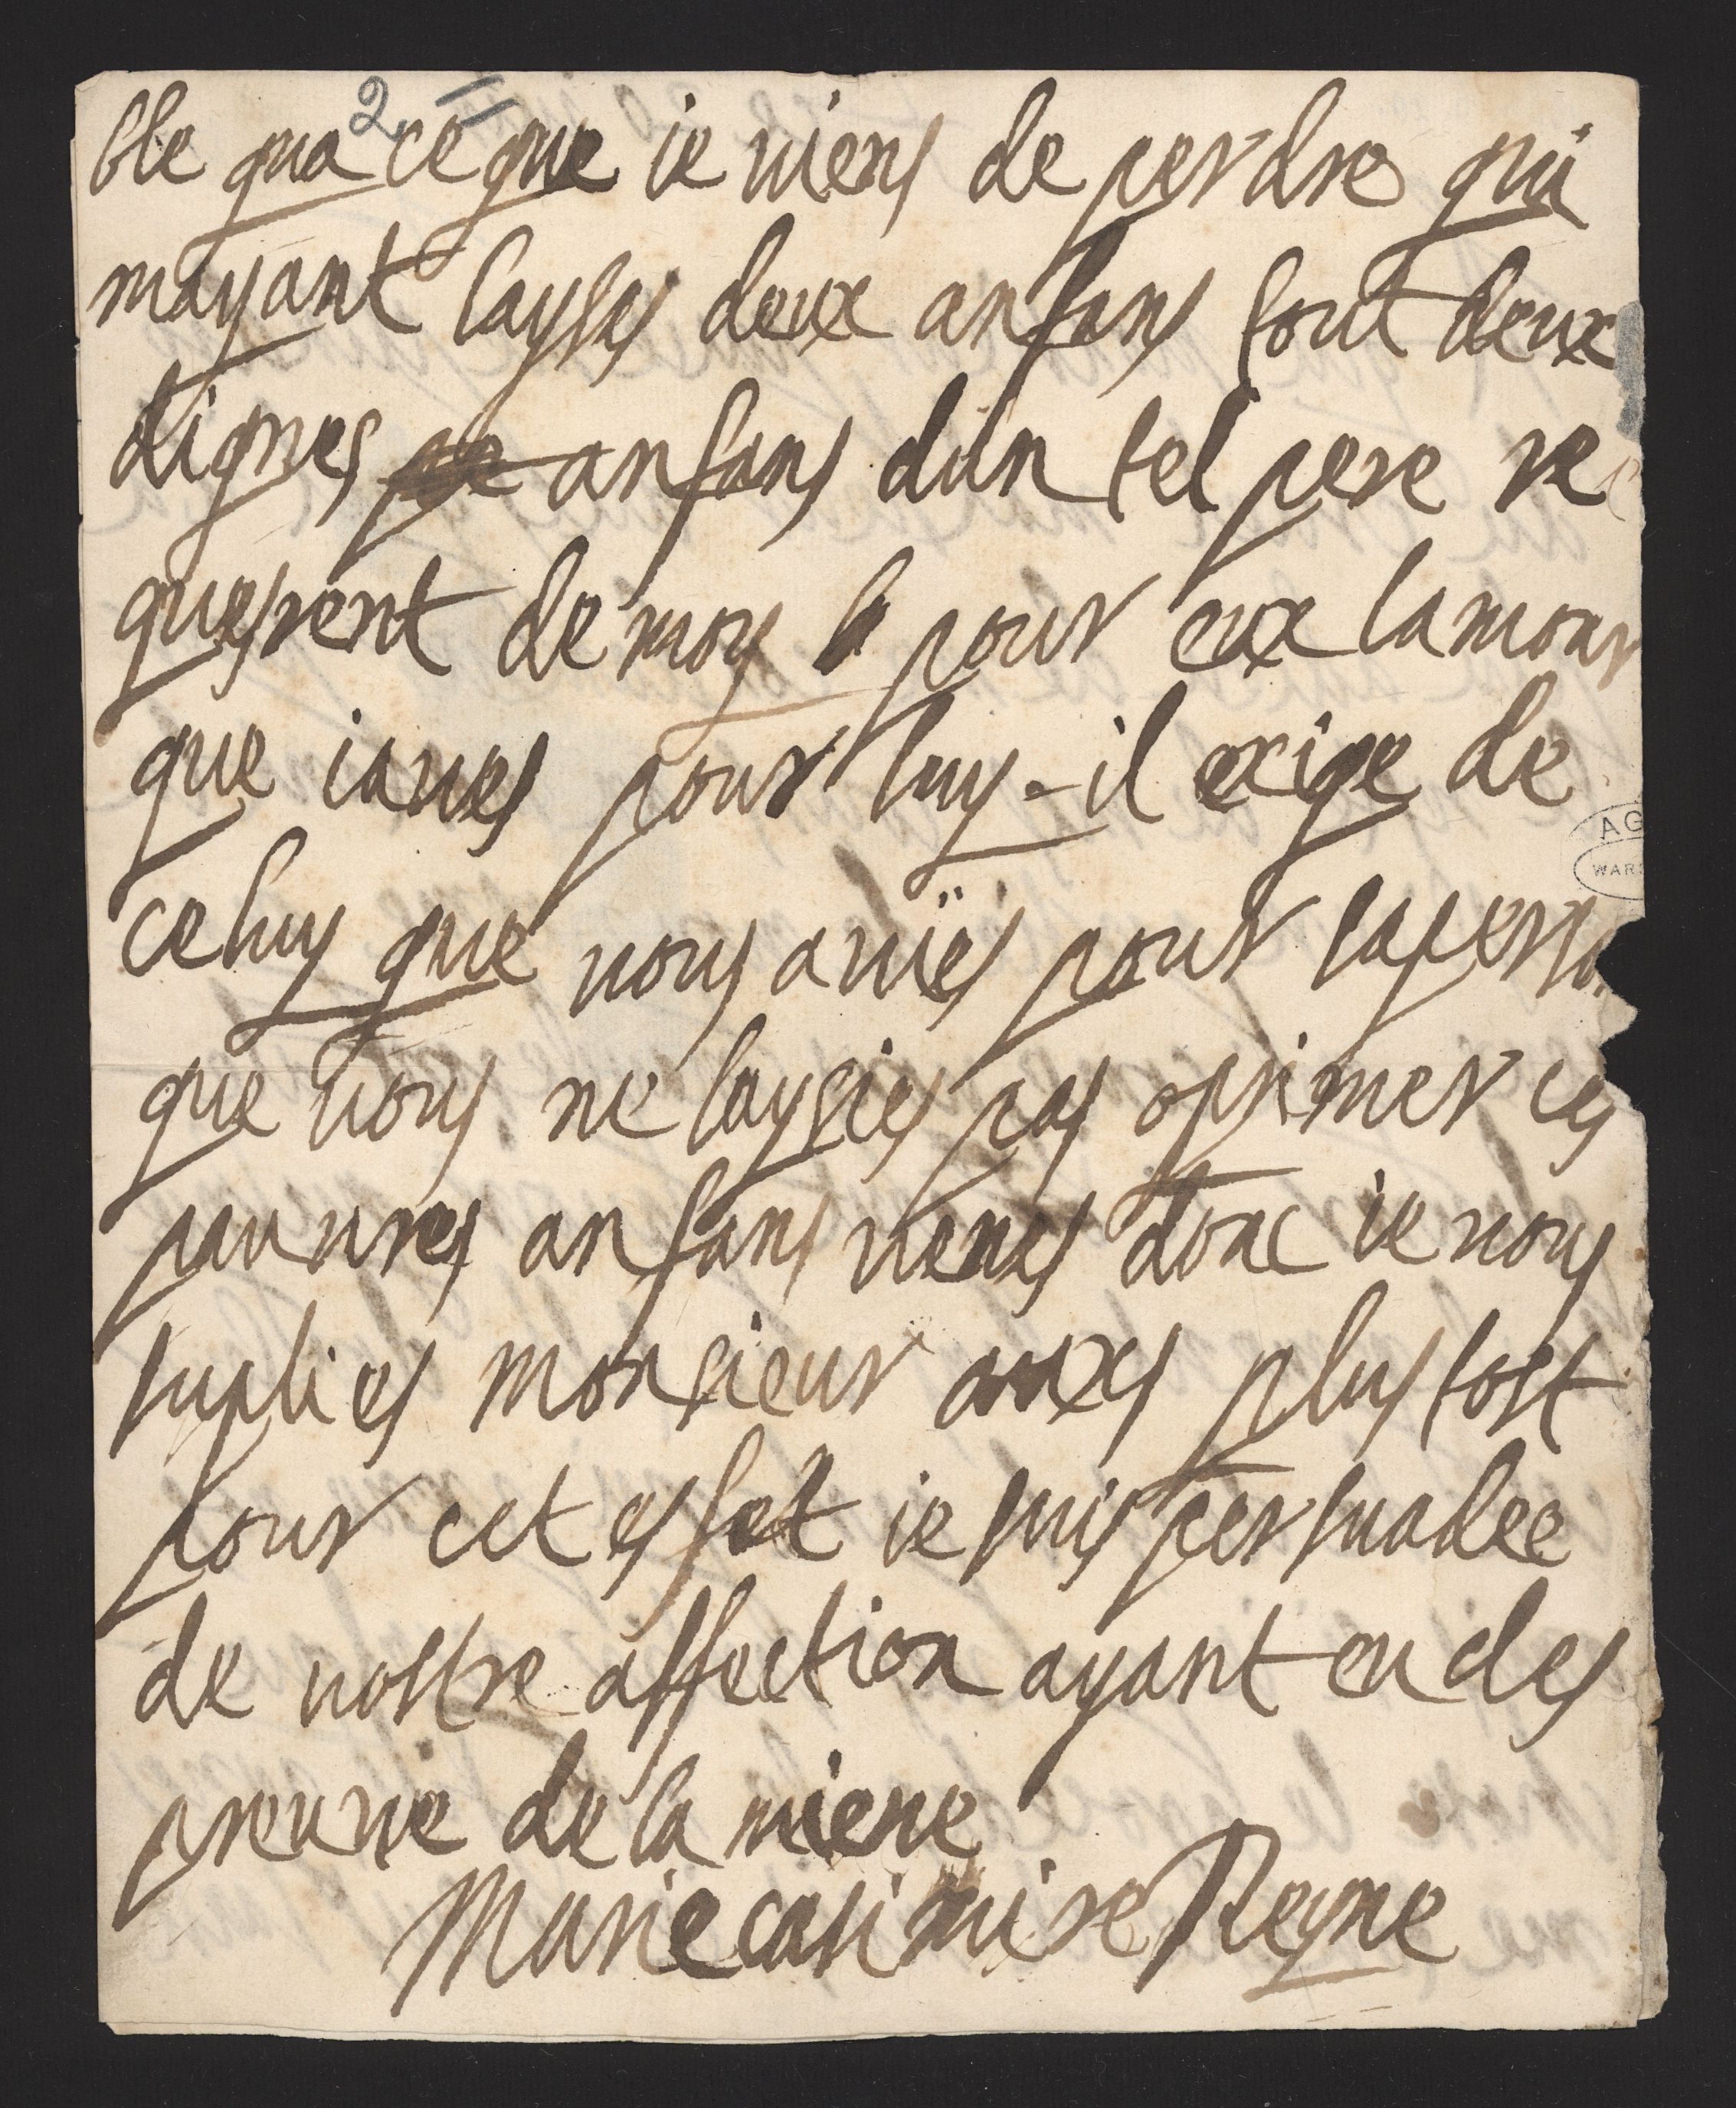 2
ble qua ce que ie viens de perdre qui
mayant layses deux anfans tout deux
dignes anfans dun tel pere re
quesrent de moy pour eux lamour
que iaues pour luy - il exige de
celuy que vous avïes pour sa perso
que vous ne laysies pas oprimer ces
pauvres anfans venes donc ie vous
suplies monsieur aux plus tost
pour cet effet ie suis persuadee
de vostre affection ayant eu des
preuve de la miene
Marie casimire Reyne
AG
WAR